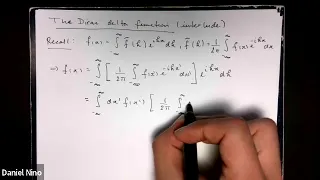 The Dirac delta function (interlude)
Recall: f(x) = ∫_{-∞}^{∞} f̃(k) e^{ikx} dk, f̃(k) = 1/2π ∫_{-∞}^{∞} f(x) e^{-ikx} dx
⇒ f(x) = ∫_{-∞}^{∞} [ 1/2π ∫_{-∞}^{∞} f(x') e^{-ikx'} dx' ] e^{ikx} dk
= ∫_{-∞}^{∞} dx' f(x') [ 1/2π ∫_{-∞}^{∞}
Daniel Nino